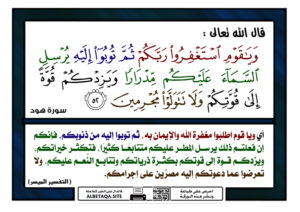 قال الله تعالى :
وَيَٰقَوْمِ ٱسْتَغْفِرُوا۟ رَبَّكُمْ ثُمَّ تُوبُوٓا۟ إِلَيْهِ يُرْسِلِ
ٱلسَّمَآءَ عَلَيْكُم مِّدْرَارًا وَيَزِدْكُمْ قُوَّةً
إِلَىٰ قُوَّتِكُمْ وَلَا تَتَوَلَّوْا۟ مُجْرِمِينَ ٥٢
سورة هود
أي ويا قوم اطلبوا مغفرة الله والإيمان به, ثم توبوا إليه من ذنوبكم, فإنكم
إن فعلتم ذلك يرسل المطر عليكم متتابعا كثيرا, فتكثر خيراتكم,
ويزدكم قوة إلى قوتكم بكثرة ذرياتكم وتتابع النعم عليكم, ولا
تعرضوا عما دعوتكم إليه مصرين على إجرامكم.
(التفسير الميسر)
ALBETAQA.SITE